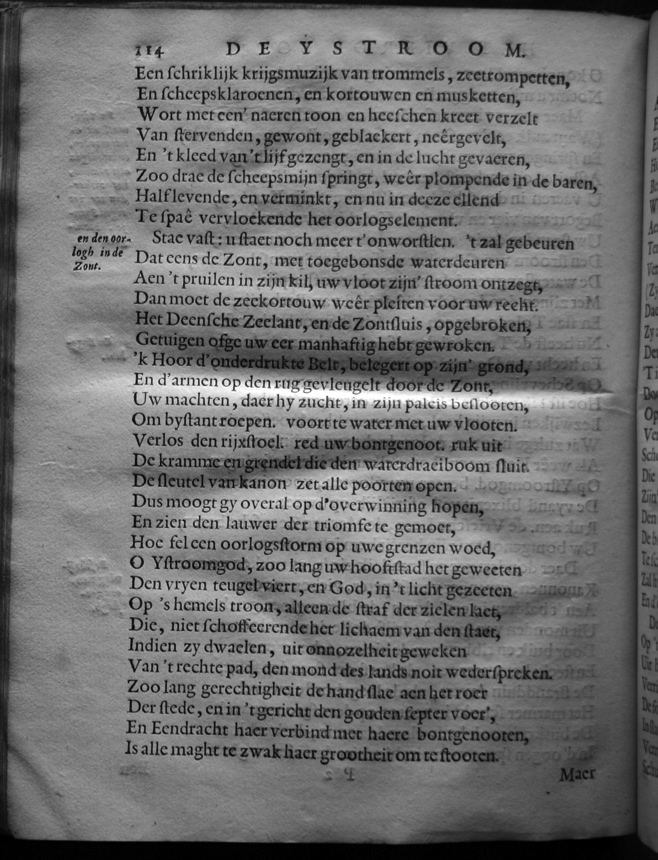 114 DE YSTROOM.
Een ſchriklijk krijgsmuzijk van trommels, zeetrompetten,
En ſcheepsklaroenen, en kortouwen en musketten,
Wort met een' naeren toon en heeſchen kreet verzelt
Van ſtervenden, gewont, geblaekert, neêrgevelt,
En 't kleed van 't lijf gezengt, en in de lucht gevaeren,
Zoo drae de ſcheepsmijn ſpringt, weêr plompende in de baren,
Half levende, en verminkt, en nu in deeze ellend
Te ſpaê vervloekende het oorlogselement.
en den oor-
logh in de
Zont.
Stae vaſt: u ſtaet noch meer t'onworſtlen. 't zal gebeuren
Dat eens de Zont, met toegebonsde waterdeuren
Aen 't pruilen in zijn kil, uw vloot zijn' ſtroom ontzegt,
Dan moet de zeekortouw weêr pleiten voor uw recht.
Het Deenſche Zeelant, en de Zontſluis, opgebroken,
Getuigen ofge uw eer manhaftig hebt gewroken.
'k Hoor d'onderdrukte Belt, belegert op zijn' grond,
En d'armen op den rug gevleugelt door de Zont,
Uw machten, daer hy zucht, in zijn paleis beſlooten,
Om byſtant roepen. voort te water met uw vlooten.
Verlos den rijxſtoel. red uw bontgenoot. ruk uit
De kramme en grendel die den waterdraeiboom ſluit.
De ſleutel van kanon zet alle poorten open.
Dus moogt gy overal op d'overwinning hopen,
En zien den lauwer der triomfe te gemoet,
Hoe fel een oorlogsſtorm op uwe grenzen woed,
O Yſtroomgod, zoo lang uw hooftſtad het geweeten
Den vryen teugel viert, en God, in 't licht gezeeten
Op 's hemels troon, alleen de ſtraf der zielen laet,
Die, niet ſchoffeerende het lichaem van den ſtaet,
Indien zy dwaelen, uit onnozelheit geweken
Van 't rechte pad, den mond des lands noit wederſpreken.
Zoo lang gerechtigheit de hand ſlae' aen het roer
Der ſtede, en in 't gericht den gouden ſepter voer',
En Eendracht haer verbind met haere bontgenooten,
Is alle maght te zwak haer grootheit om te ſtooten.
P 2
Maer